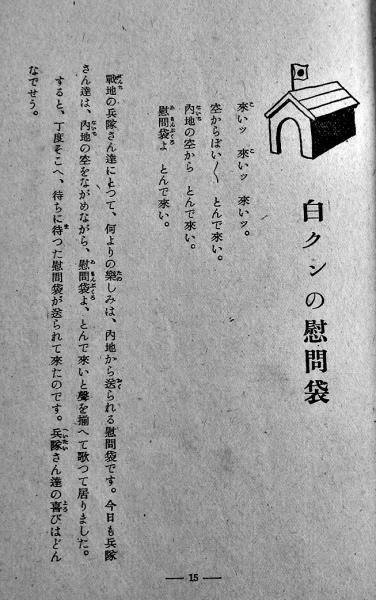 白クンの慰問袋
來いッ　來いッ　來いッ。
空からぽい〱　とんで來い。
內地の空から　とんで來い。
慰問袋よ　とんで來い。
戰地の兵隊さん達にとつて、何よりの樂しみは、內地から送られる慰問袋です。今日も兵隊
さん達は、內地の空をながめながら、慰問袋よ、とんで來いと聲を揃へて歌つて居りました。
すると、丁度そこへ、待ちに待つた慰問袋が送られて來たのです。兵隊さん達の喜びはどん
なでせう。
— 15 —